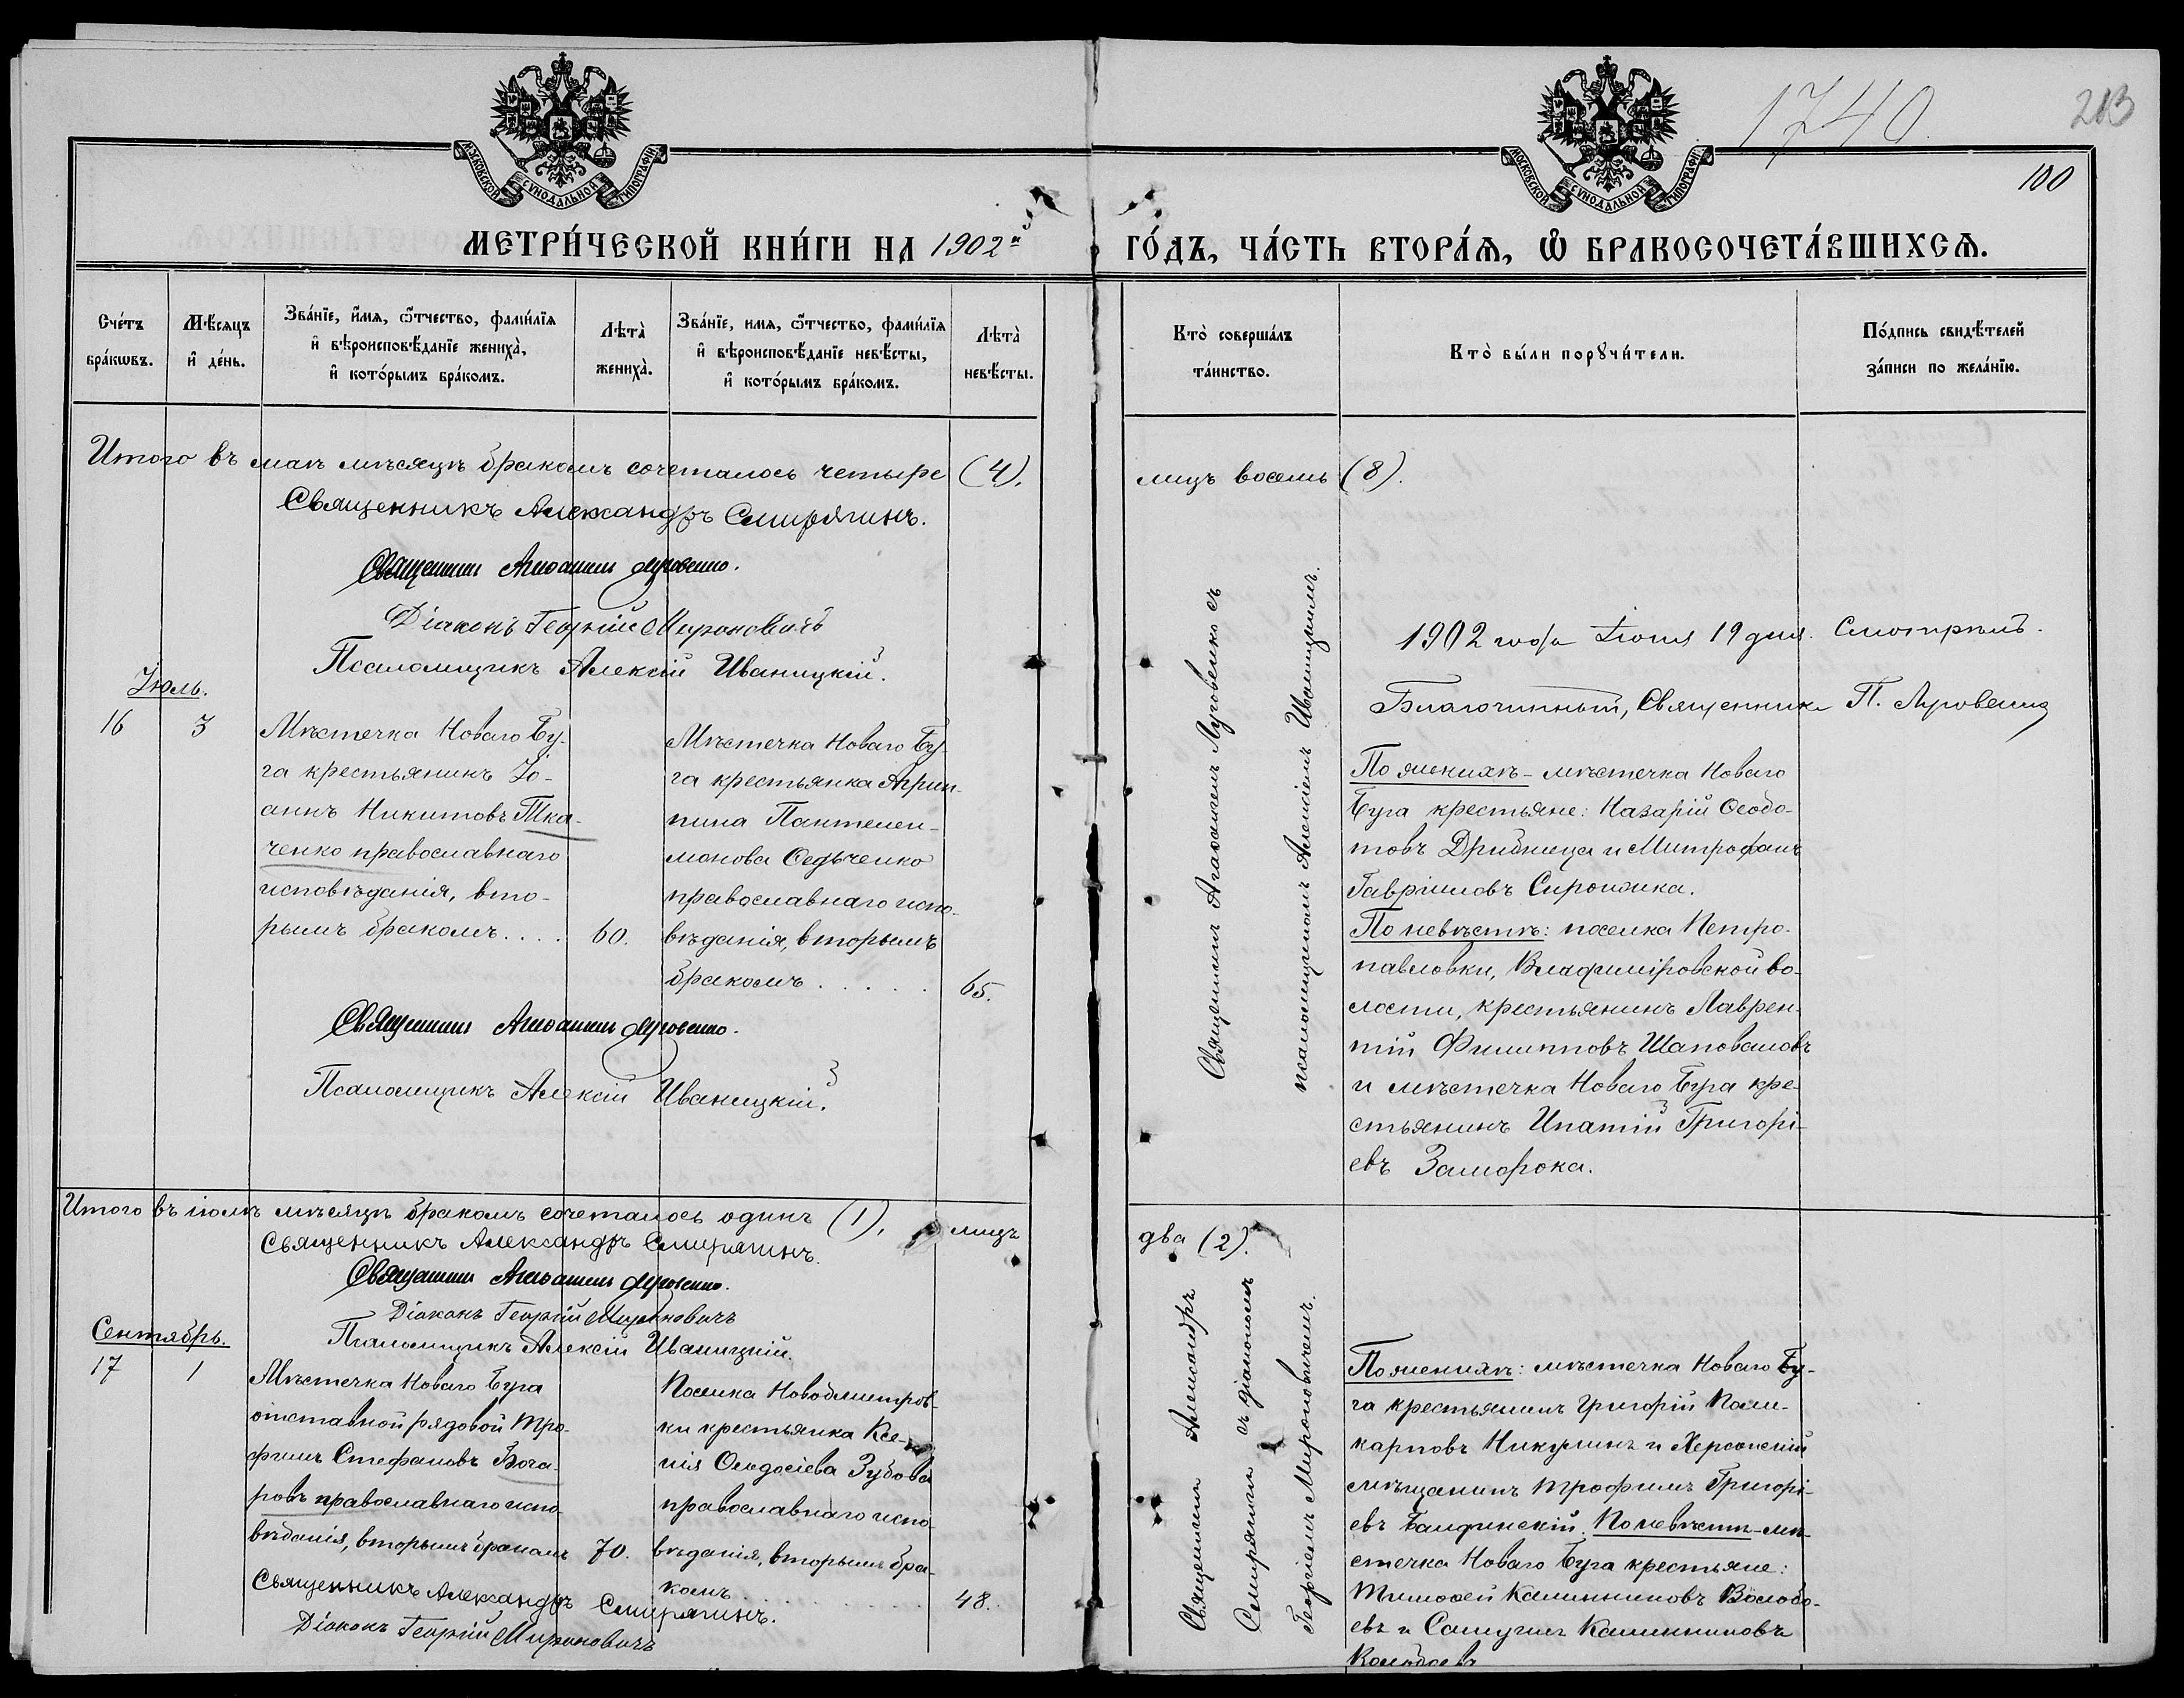 1740
213
100
МОСКОВСКОЙ СѴНОДАЛЬНОЙ ТИПОГРАФІИ
МОСКОВСКОЙ СѴНОДАЛЬНОЙ ТИПОГРАФІИ
МЕТРИ́ЧЕСКОЙ КНИ́ГИ НА 1902й ГО́ДЪ, ЧА́СТЬ ВТОРА́Я, Ѿ БРАКОСОЧЕТА́ВШИХСѦ.
Сче́тъ бра́кѡвъ.
Мѣ́сяцъ и҆ де́нь.
Зва́нїе, и҆́мя, ѻ҆́тчество, фами́лїя
и҆ вѣроисповѣ́данїе жениха̀,
и҆ кото́рымъ бра́комъ.
Лѣта̀ жениха̀.
Зва́нїе, имя, ѻ҆́тчество, фами́лїя
и҆ вѣроисповѣ́данїе невѣ́сты,
и҆ кото́рымъ бра́комъ.
Лѣта̀ невѣ́сты.
Кто̀ соверша́лъ та́инство.
Кто̀ бы́ли порꙋчи́тели.
По́дпись свидѣ́телей за́писи по жела́нїю.
Итого въ маѣ мѣсяцѣ бракомъ сочеталось четыре (4), лицъ восемь (8).
Священникъ Александръ Смирягинъ.
Священникъ Агаѳангелъ Луговенко.
Діаконъ Георгій Мироновичъ
Псаломщикъ Алексій Иваницкій.
1902 года Іюня 19 дня. Смотрѣлъ.
Благочинный, Священникъ П. Луговенко
Іюль.
16
3
Мѣстечка Новаго Бу-
га крестьянинъ Іо-
аннъ Никитовъ Тка-
ченко православнаго
исповѣданія, вто-
рымъ бракомъ....
60.
Мѣстечка Новаго Бу-
га крестьянка Агрип-
пина Пантелеи-
монова Седьченко
православнаго испо-
вѣданія, вторымъ
бракомъ.....
65.
Священникъ Агаѳангелъ Луговенко съ
псаломщикомъ Алексіемъ Иваницкимъ.
По женихѣ - мѣстечка Новаго
Буга крестьяне: Назарій Ѳеодо-
товъ Дрибница и Митрофанъ
Гавріиловъ Сиротика.
По невѣстѣ: поселка Петро-
павловки, Владиміровской во-
лости, крестьянинъ Лаврен-
тій Филипповъ Шаповаловъ
и мѣстечка Новаго Буга кре-
стьянинъ Ипатій Григорі-
евъ Заморока.
Священникъ Агаѳангелъ Луговенко.
Псаломщикъ Алексій Иваницкій.
Итого въ іюлѣ мѣсяцѣ бракомъ сочеталось одинъ (1), лицъ два (2).
Священникъ Александръ Смирягинъ.
Священникъ Агаѳангелъ Луговенко.
Діаконъ Георгій Мироновичъ
Псаломщикъ Алексій Иваницкій.
Сентябрь.
17
1
Мѣстечка Новаго Буга
отставной рядовой Тро-
фимъ Стефановъ Боча-
ровъ православнаго испо-
вѣданія, вторымъ бракомъ
70.
Поселка Новодмитров-
ки крестьянка Ксе-
нія Ѳеодосіева Зубова
православнаго испо-
вѣданія, вторымъ бра-
комъ.......
48.
Священникъ Александръ
Смирягинъ съ діакономъ
Георгіемъ Мироновичемъ.
По женихѣ: мѣстечка Новаго Бу-
га крестьянинъ Григорій Поли-
карповъ Никулинъ и Херсонскій
мѣщанинъ Трофимъ Григорі-
евъ По невѣстѣ - мѣ-
стечка Новаго Буга крестьяне:
Тимоѳей Калинниковъ
евъ и Самуилъ Калинниковъ
Священникъ Александръ Смирягинъ.
Діаконъ Георгій Мироновичъ